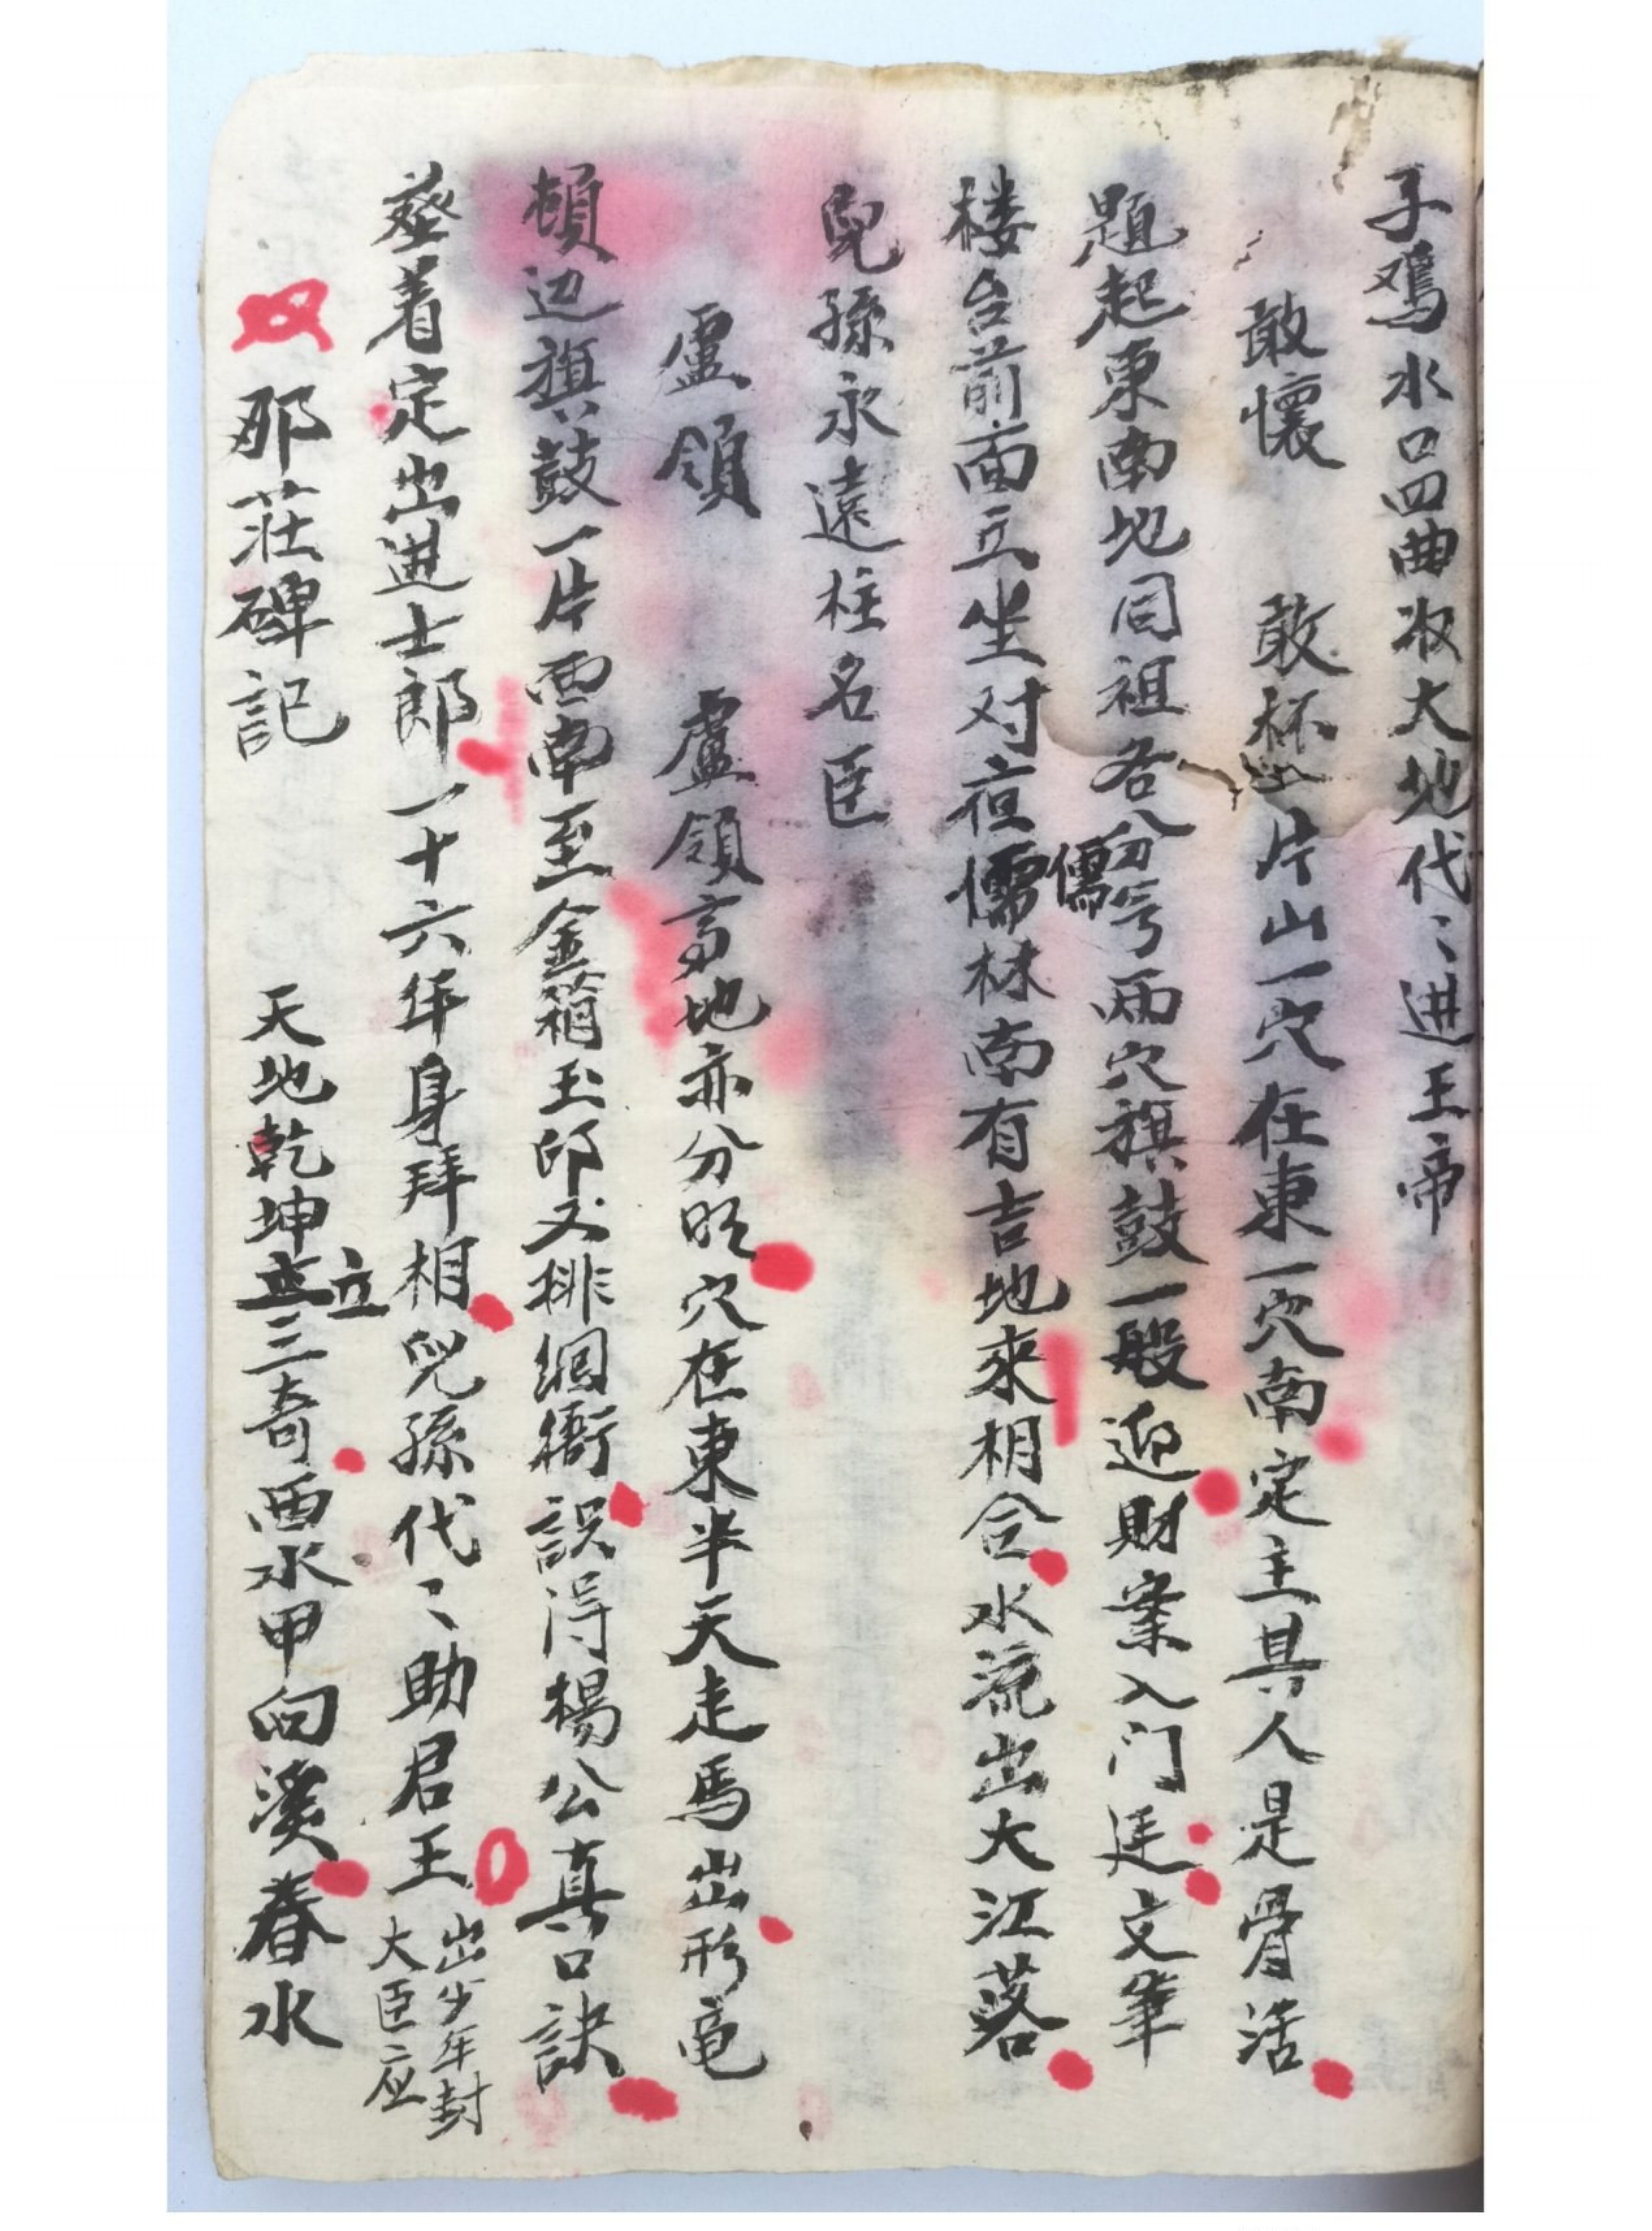 子鸡水口四曲水大地代々进王帝
敢懷 敢杯山片山一穴在東一穴南定主具人是骨活
題起東南地同祖各分兮兩穴旗鼓一般迎財案入门廷文筆
楼台前面立坐对夜儒林南有吉地來相合水流出大江落
儒
兒孫永遠柱名臣
盧領 盧領高地亦分明穴在東半天走馬出形竜
頓边旗鼓一片西南至金箱玉印又排衙誤浔楊公真口訣
塟着定出进士郎一十六年身拜相兒孫代々助君王出少年封
大臣应
那莊碑記 天地乾坤立三奇酉水甲向溪春水
立